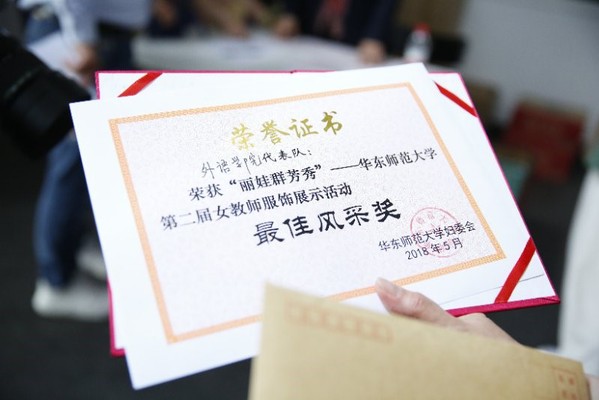 荣誉证书
外语学院代表队：
荣获“丽娃群芳秀”——华东师范大学
第二届女教师服饰展示活动
最佳风采奖
华东师范大学妇委会
2018年5月